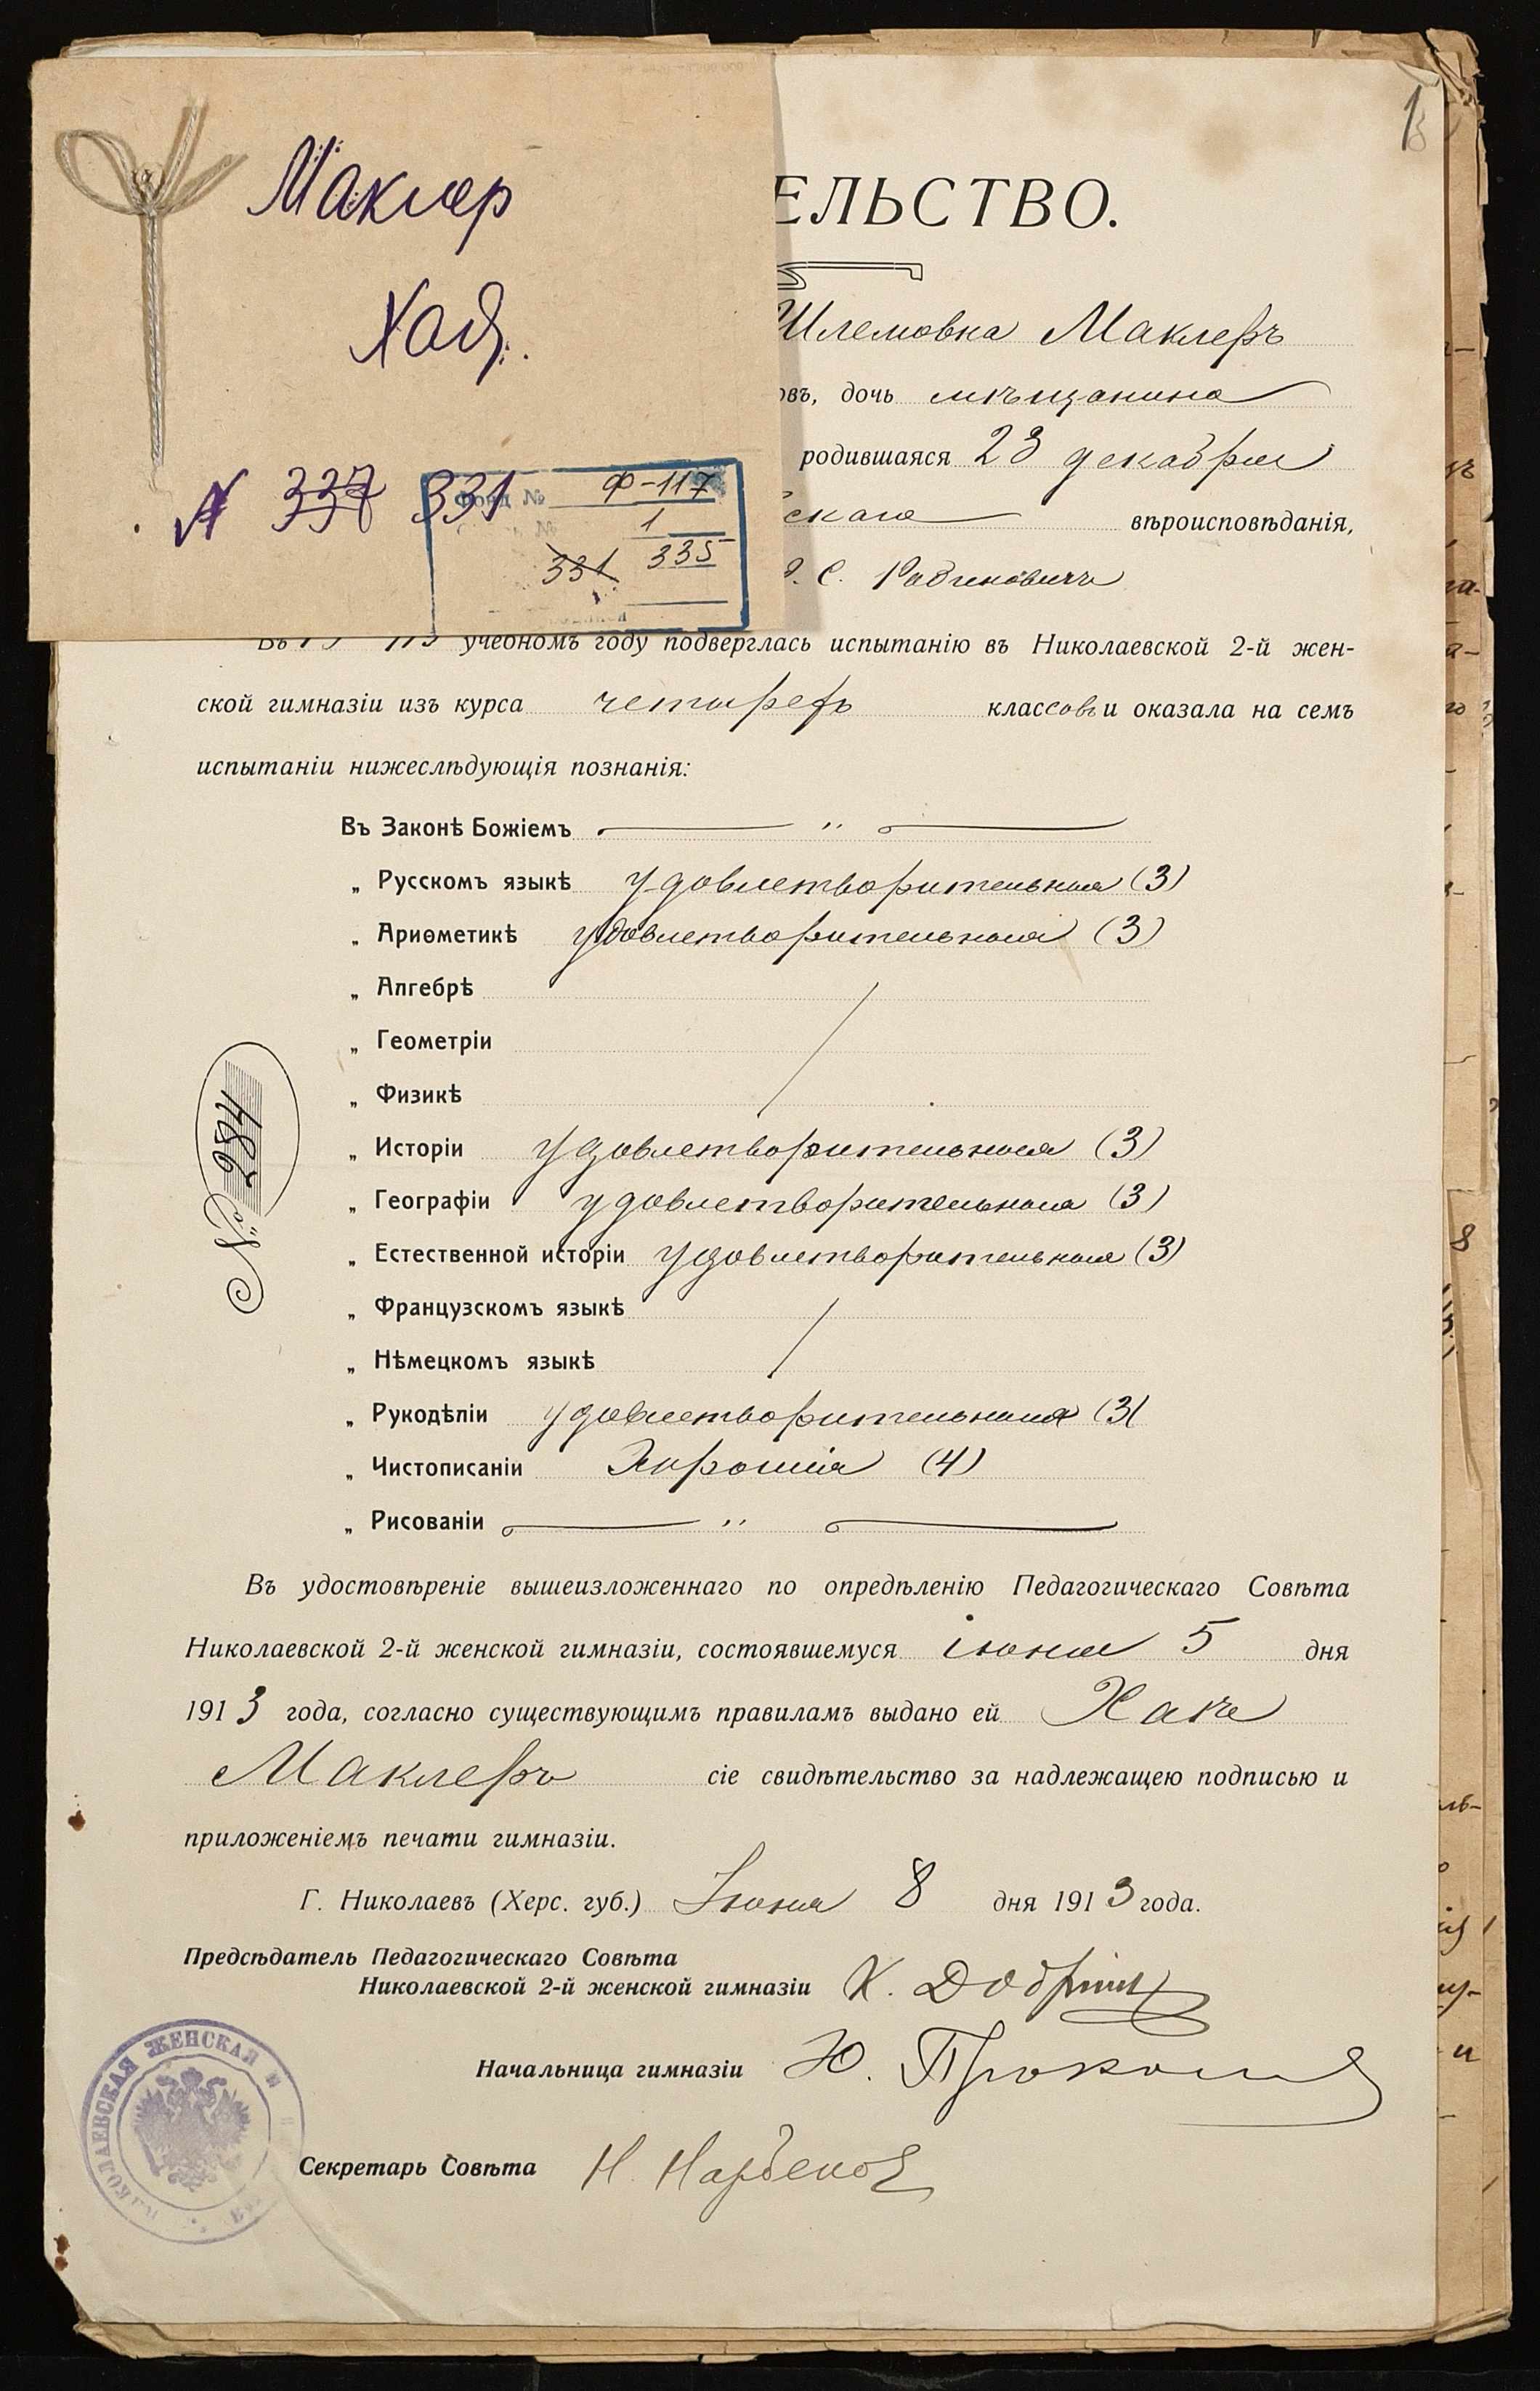 Маклер
Хая.
№ 337 331
Фонд № Ф-117
№ 1
331 335
1
ЕЛЬСТВО.
Шлемовна Маклеръ
овъ, дочь мѣщанина
родившаяся 23 декабря
скаго вѣроисповѣданія,
С.
учебномъ году подверглась испытанію въ Николаевской 2-й жен-
ской гимназіи изъ курса четырехъ классовъ и оказала на семъ
испытаніи нижеслѣдующія познанія:
Въ Законѣ Божіемъ — " —
„ Русскомъ языкѣ удовлетворительныя (3)
„ Ариѳметикѣ удовлетворительныя (3)
„ Алгебрѣ
„ Геометріи
„ Физикѣ
„ Исторіи удовлетворительныя (3)
„ Географіи удовлетворительныя (3)
„ Естественной исторіи удовлетворительныя (3)
„ Французскомъ языкѣ
„ Нѣмецкомъ языкѣ
„ Рукодѣліи удовлетворительныя (3)
„ Чистописаніи Хорошія (4)
„ Рисованіи — " —
№ 284
Въ удостовѣреніе вышеизложеннаго по опредѣленію Педагогическаго Совѣта
Николаевской 2-й женской гимназіи, состоявшемуся іюня 5 дня
1913 года, согласно существующимъ правиламъ выдано ей Хаѣ
Маклеръ сіе свидѣтельство за надлежащею подписью и
приложеніемъ печати гимназіи.
Г. Николаевъ (Херс. губ.) Іюня 8 дня 1913 года.
Предсѣдатель Педагогическаго Совѣта
Николаевской 2-й женской гимназіи К.
Начальница гимназіи Ю.
Секретарь Совѣта Н.
НИКОЛАЕВСКАЯ ЖЕНСКАЯ